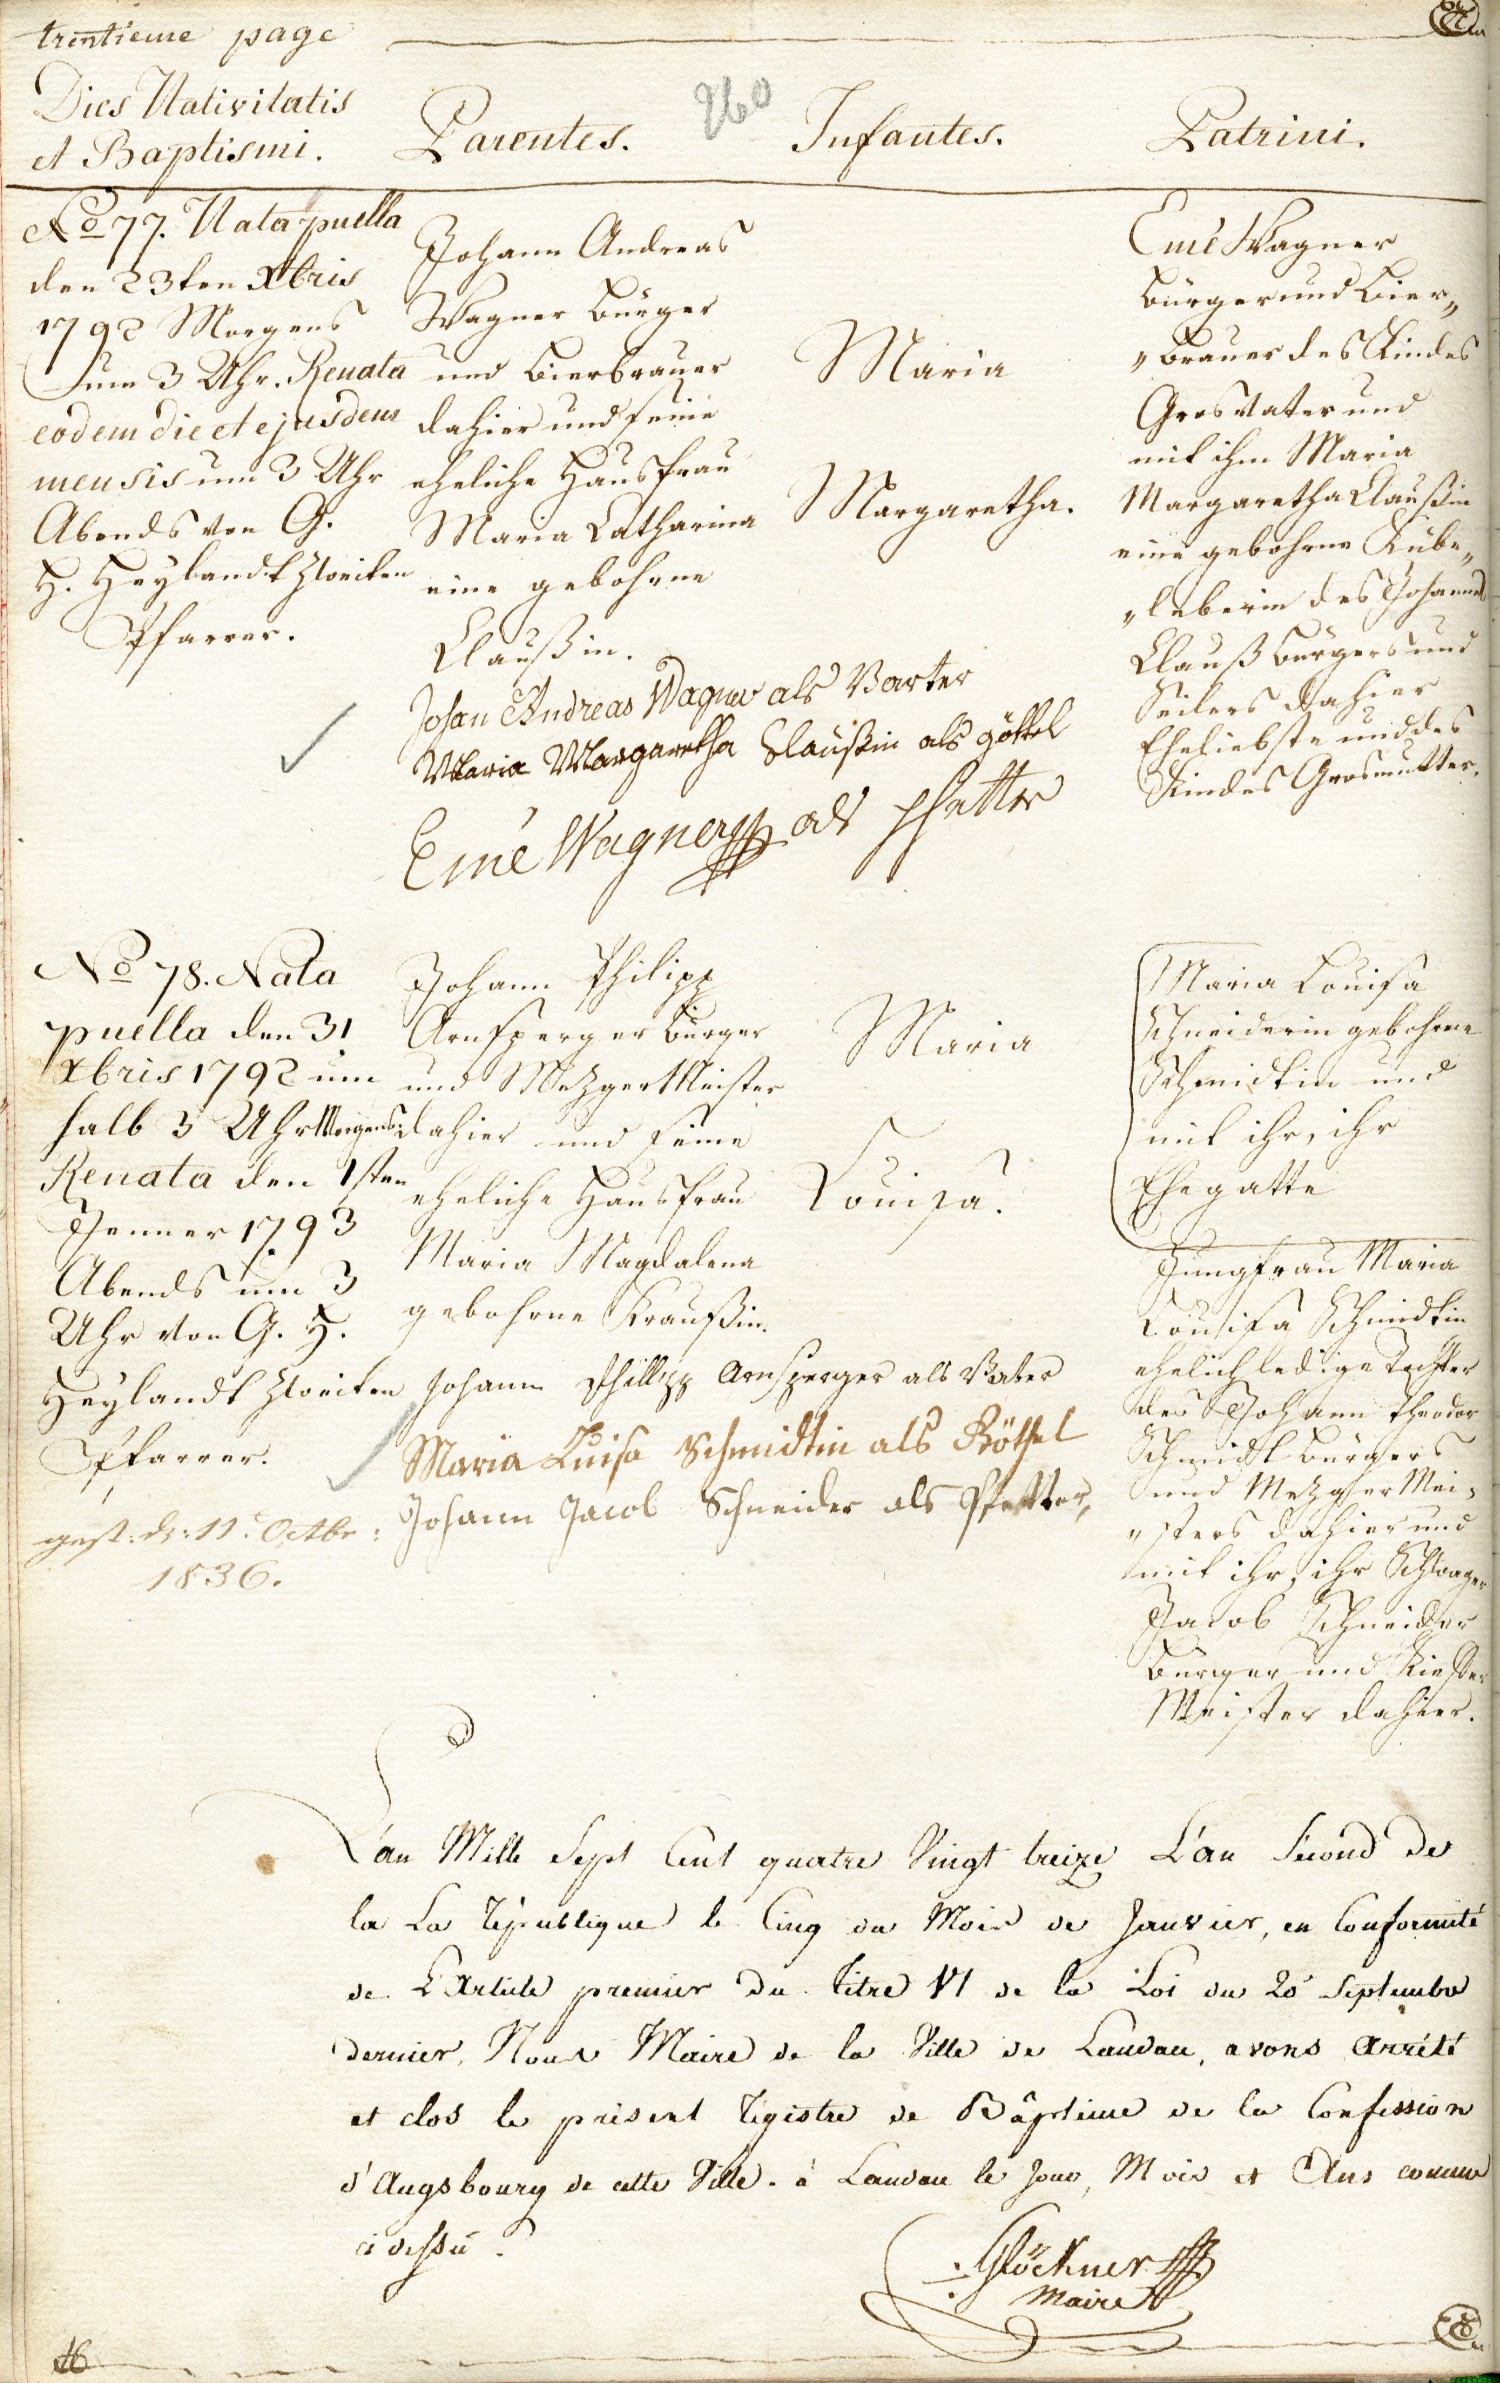 trentieme page
260
Dies Nativitatis
et Baptismi.
Parentes.
Infantes.
Patrini.
No 77. Nata puella
den 23ten Xbris
1792 Morgens
um 3 Uhr. Renata
eodem die et ejusdem
mensis um 3 Uhr
Abends von G.
H. Heylandt Zweiten
Pfarrer.
Johann Andreas
Wagner Bürger
und Bierbrauer
dahier und seine
eheliche Hausfrau
Maria Catharina
eine gebohrne
Claußin.
Maria
Margaretha.
Emé Wagner
Bürger und Bier„
„brauer des Kindes
Grosvater und
mit ihm Maria
Margaretha Claußin
eine gebohrne Kübe„
„leberin des Johannes
Clauß Bürgers und
Seilers dahier
Eheliebste und des
Kindes Grosmutter.
Johan Andreas Wagner als Varter
Maria Margaretha Claußin als göttel
Emé Wagner als pfetter
No 78. Nata
puella den 31
Xbris 1792 um
halb 3 Uhr Morgens.
Renata den 1sten
Jenner 1793
Abends um 3
Uhr von G. H.
Heylandt Zweiten
Pfarrer.
gest: d: 11t Octbr:
1836.
Johann Philipp
Arnsperger Bürger
und MezgerMeister
dahier und seine
eheliche Hausfrau
Maria Magdalena
gebohrne Kraußin.
Maria
Louisa.
Maria Louisa
Schneiderin gebohrne
Schmidtin und
mit ihr, ihr
Ehegatte
Jungfrau Maria
Louisa Schmidtin
ehelich ledige Tochter
des Johann Theodor
Schmidt Bürgers
und Mezger Mei„
„sters dahier und
mit ihr, ihr Schwager
Jacob Schneider
Bürger und Kiefer
Meister dahier.
Johann Phillipp Arnsperger als Vater
Maria Luisa Schmidtin als Göthel
Johann Jacob Schneider als Pfetter,
L'an Mille Sept Cent quatre Vingt treize L'an Second de
la La République le Cinq du Mois de Janvier, en Conformité
de L'Article premier du titre VI de la Loi du 20 Septembre
dernier, Nous Maire de la Ville de Landau, avons Arrêté
et clos le présent Registre de Bâptême de la Confession
d'Augsbourg de cette Ville. à Landau le Jour, Mois et Ans comme
ci dessu.
Glöckner
Maire